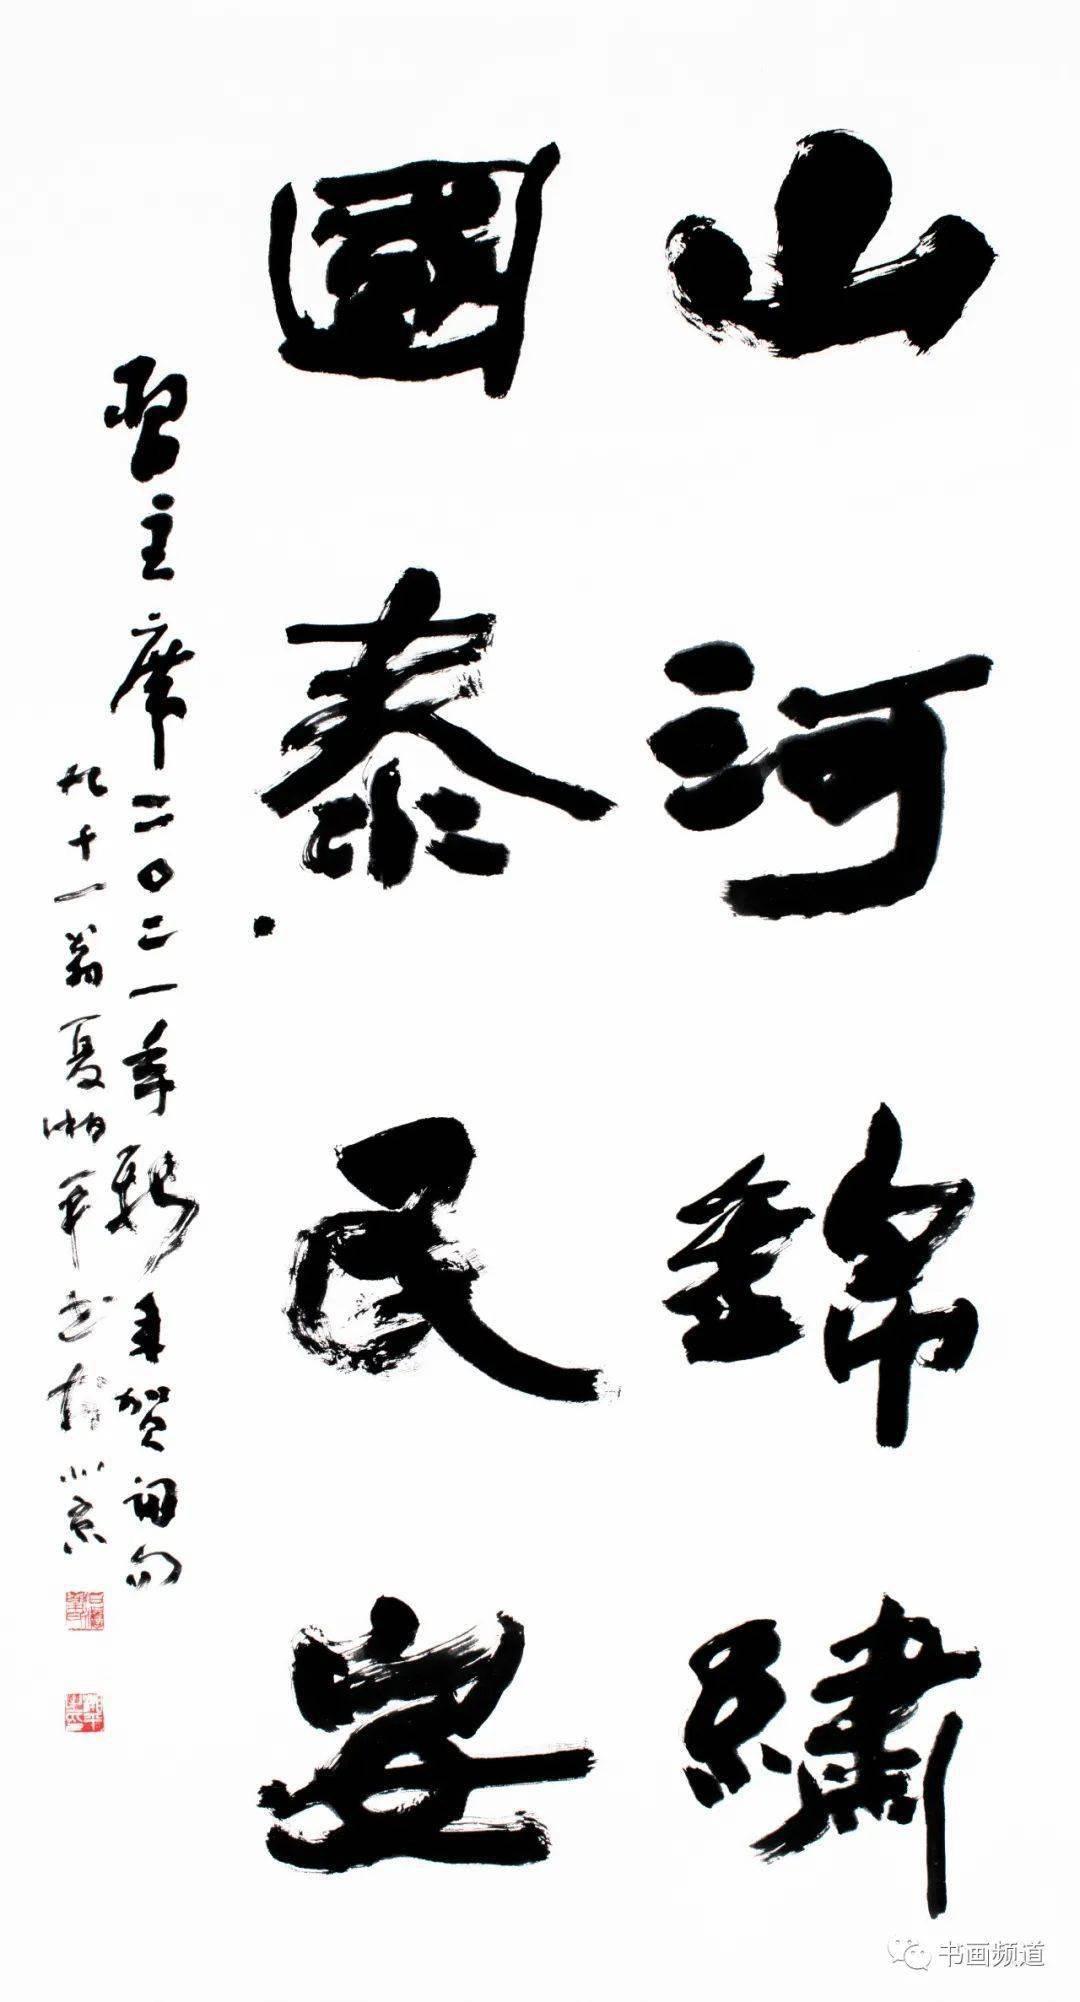 山河錦繡
國泰民安
习主席二〇二一年新年贺词句
九十一翁夏湘平书於北京
书画频道